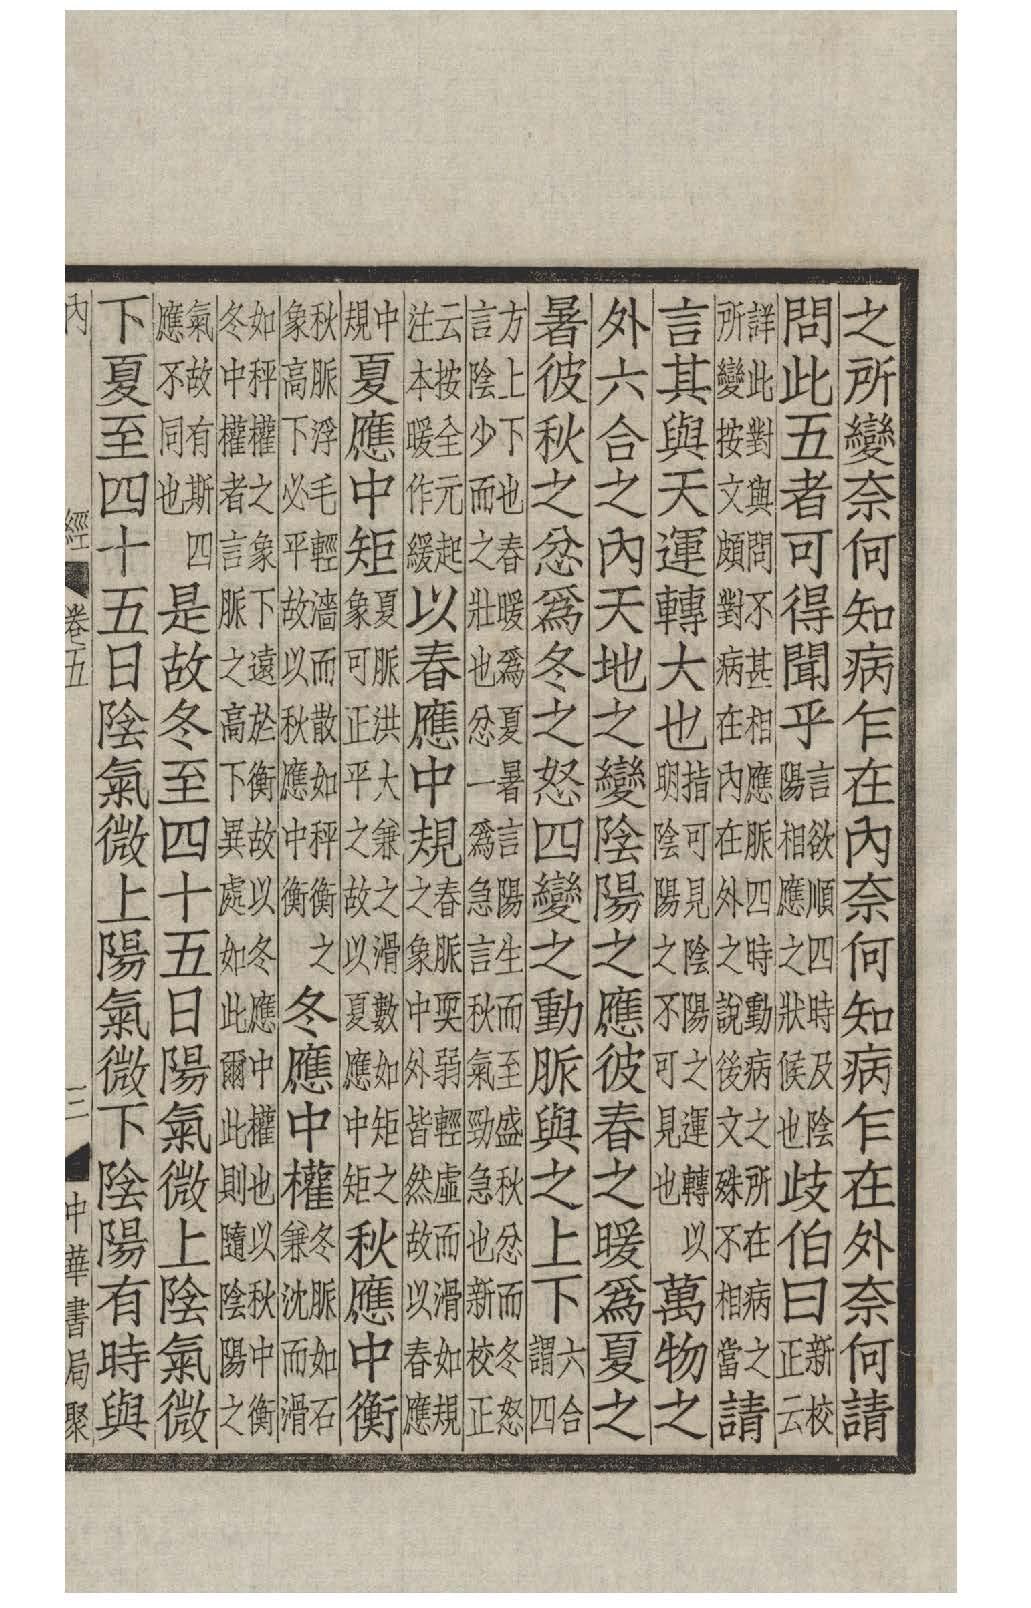 之所變奈何知病乍在內奈何知病乍在外奈何請
問此五者可得聞乎言欲順四時及陰陽相應之狀候也歧伯曰新校正云
詳此對與問不甚相應脈四時動病之所在病之所變按文頗對病在內在外之說後文殊不相當請
言其與天運轉大也指可見陰陽之運轉以明陰陽之不可見也萬物之
外六合之內天地之變陰陽之應彼春之暖爲夏之
暑彼秋之忿爲冬之怒四變之動脈與之上下六合謂四
方上下也春暖爲夏暑言陽生而至盛秋忿而冬怒言陰少而之壯也忿一爲急言秋氣勁急也新校正
云按全元起注本暖作緩以春應中規春脈耎弱輕虛而滑如規之象中外皆然故以春應
中規夏應中矩夏脈洪大兼之滑數如矩之象可正平之故以夏應中矩秋應中衡
秋脈浮毛輕濇而散如秤衡之象高下必平故以秋應中衡冬應中權冬脈如石兼沈而滑
如秤權之象下遠於衡故以冬應中權也以秋中衡冬中權者言脈之高下異處如此爾此則隨陰陽之
氣故有斯四應不同也是故冬至四十五日陽氣微上陰氣微
下夏至四十五日陰氣微上陽氣微下陰陽有時與
內經 卷五 三 中華書局聚